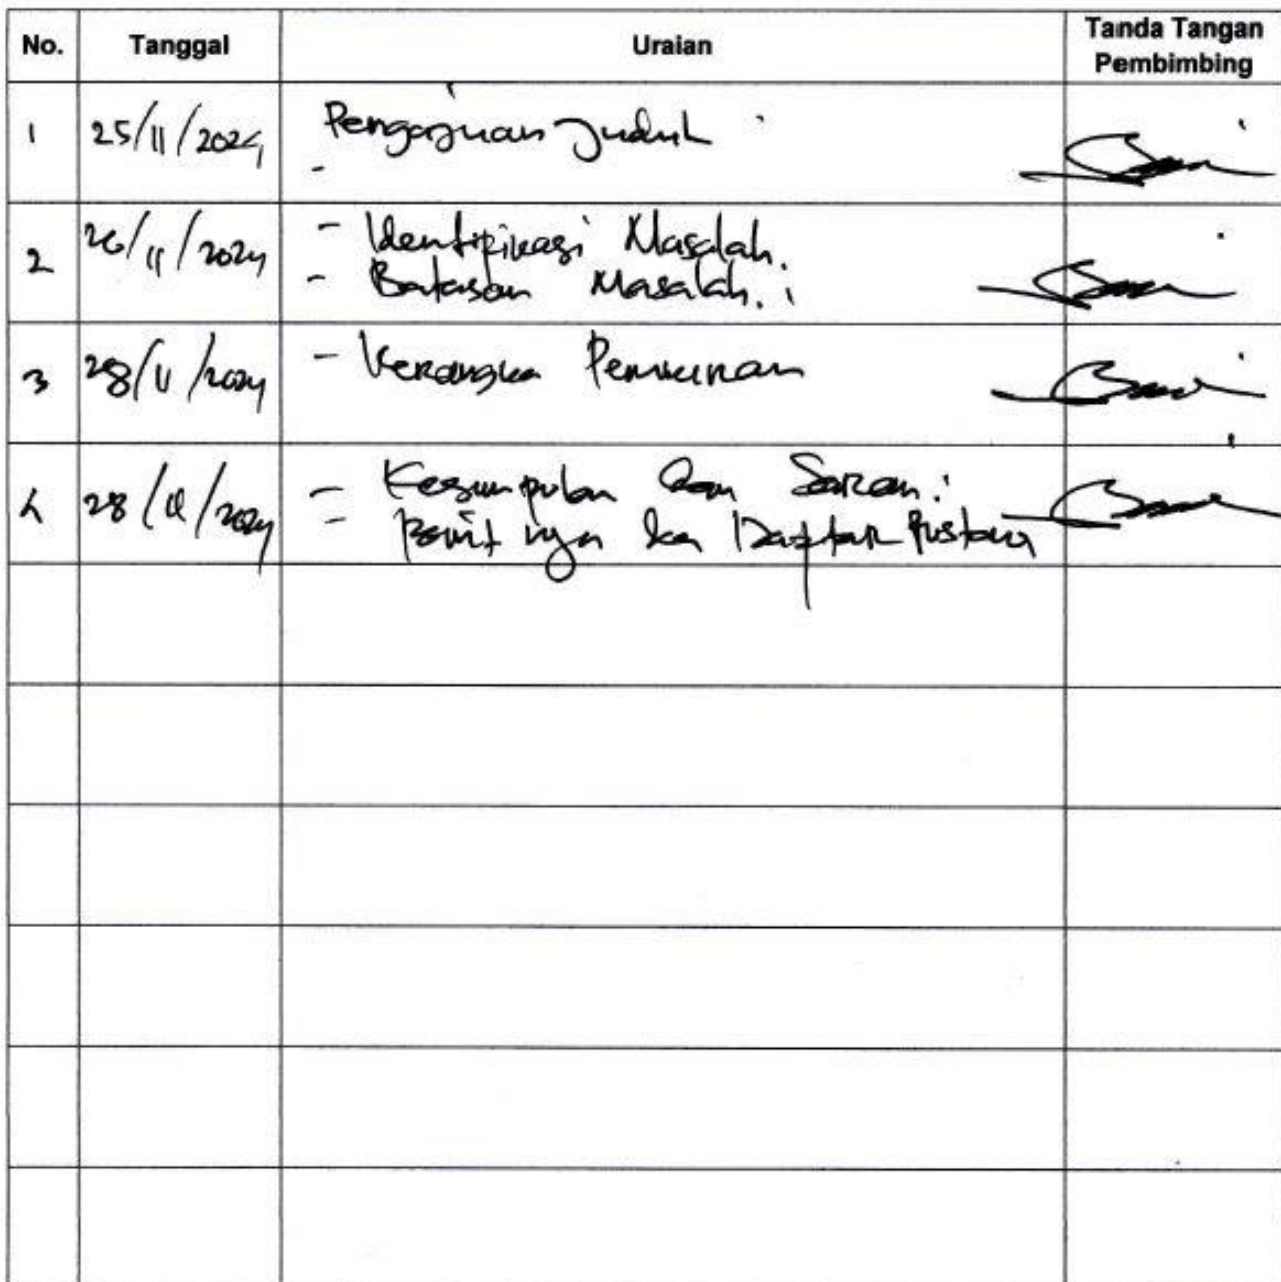 No. Tanggal Uraian Tanda Tangan
Pembimbing
1 25/11/2024 Pengajuan Judul
2 26/11/2024 - Identifikasi Masalah.
- Batasan Masalah.
3 28/11/2024 - Kerangka Pemikiran
4 28/11/2024 - Kesimpulan dan Saran.
- dan Daftar Pustaka